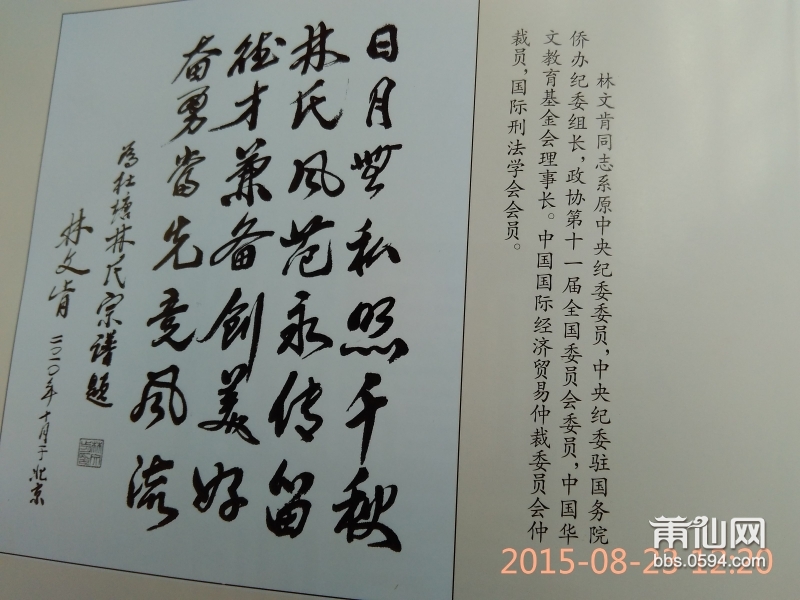 林文肯同志系原中央纪委委员，中央纪委驻国务院
侨办纪委组长，政协第十一届全国委员会委员，中国华
文教育基金会理事长。中国国际经济贸易仲裁委员会仲
裁员，国际刑法学会会员。
日月無私照千秋
林氏风范永传留
德才兼备创美好
奋勇當先竞风流
为社塘林氏宗谱题
林文肯 二〇一〇年十月于北京
莆仙网
bbs.0594.com
2015-08-23 12:20